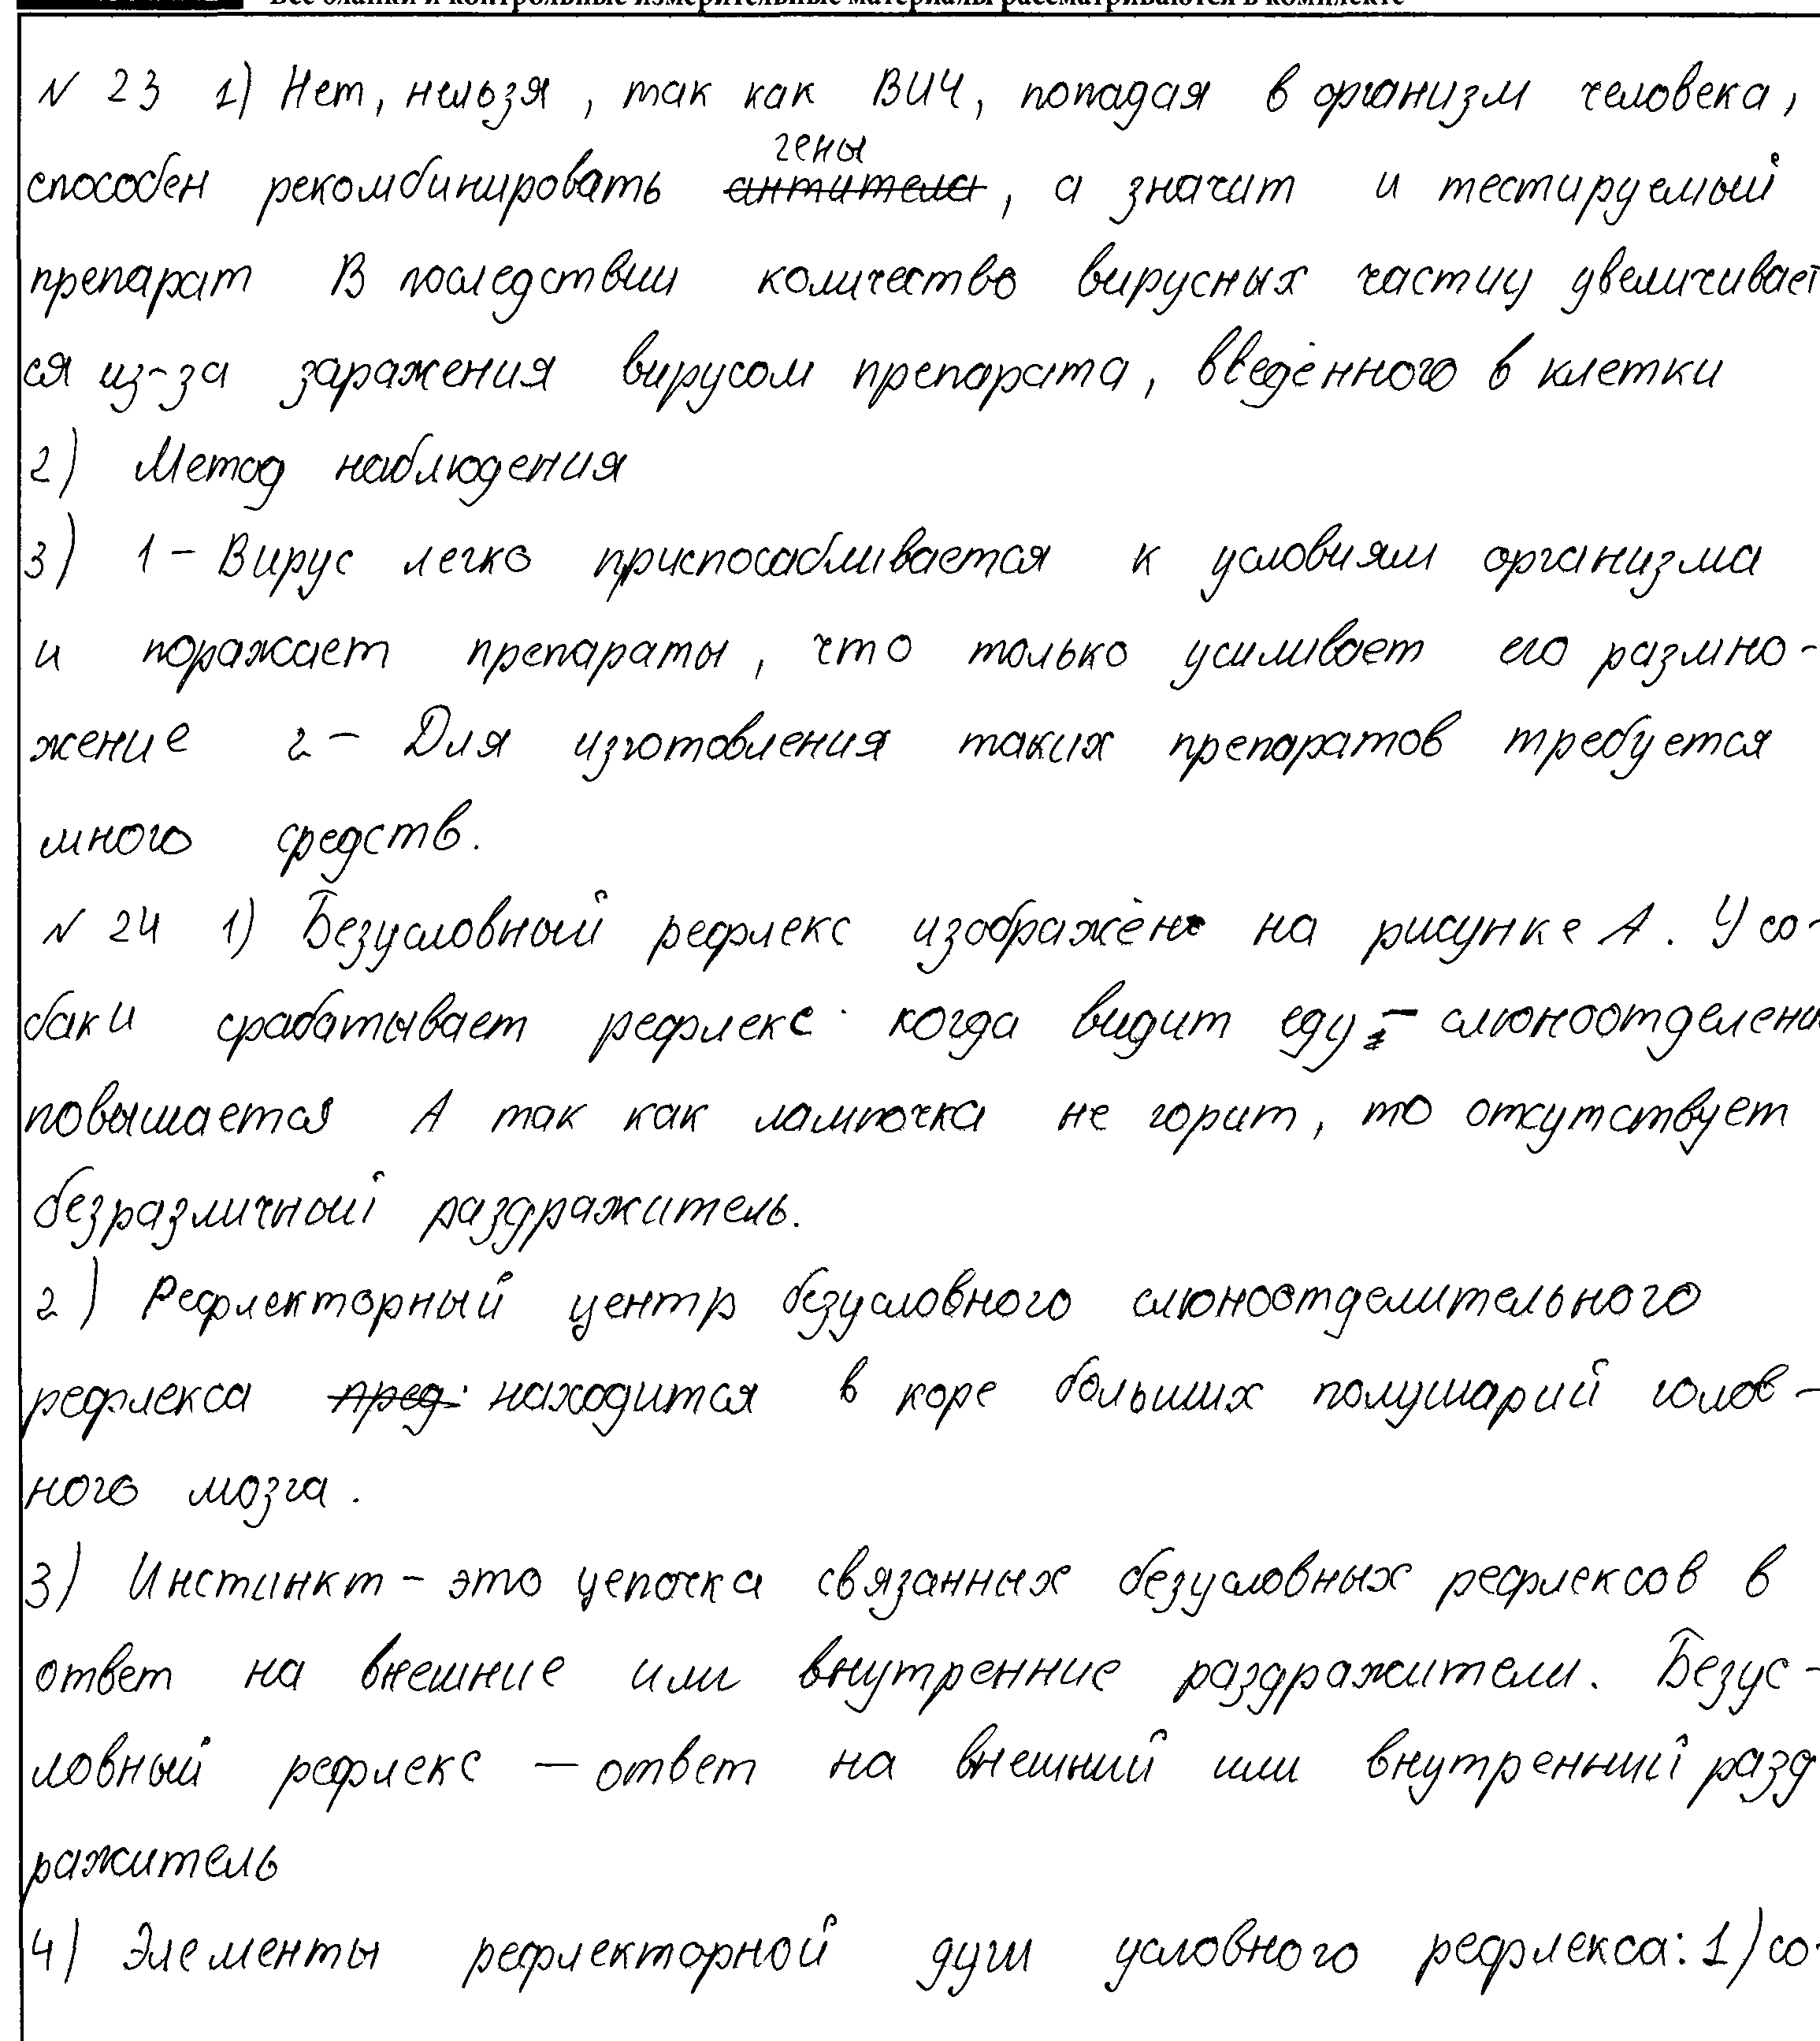 Все бланки и контрольные измерительные материалы рассматриваются в комплекте
№ 23 1) Нет, нельзя, так как ВИЧ, попадая в организм человека,
гены
способен рекомбинировать антитела, а значит и тестируемый
препарат В последствии количество вирусных частиц увеличивает
ся из-за заражения вирусом препарата, введённого в клетки
2) Метод наблюдения
3) 1 - Вирус легко приспосабливается к условиям организма
и поражает препараты, что только усиливает его размно-
жение 2 - Для изготовления таких препаратов требуется
много средств.
№ 24 1) Безусловный рефлекс изображён на рисунке А. У со-
баки срабатывает рефлекс когда видит еду - слюноотделени
повышается А так как лампочка не горит, то отсутствует
безразличный раздражитель.
2) Рефлекторный центр безусловного слюноотделительного
рефлекса пред. находится в коре больших полушарий голов-
ного мозга.
3) Инстинкт - это цепочка связанных безусловных рефлексов в
ответ на внешние или внутренние раздражители. Безус-
ловный рефлекс — ответ на внешний или внутренний разд
ражитель
4) Элементы рефлекторной дуги условного рефлекса: 1) со-